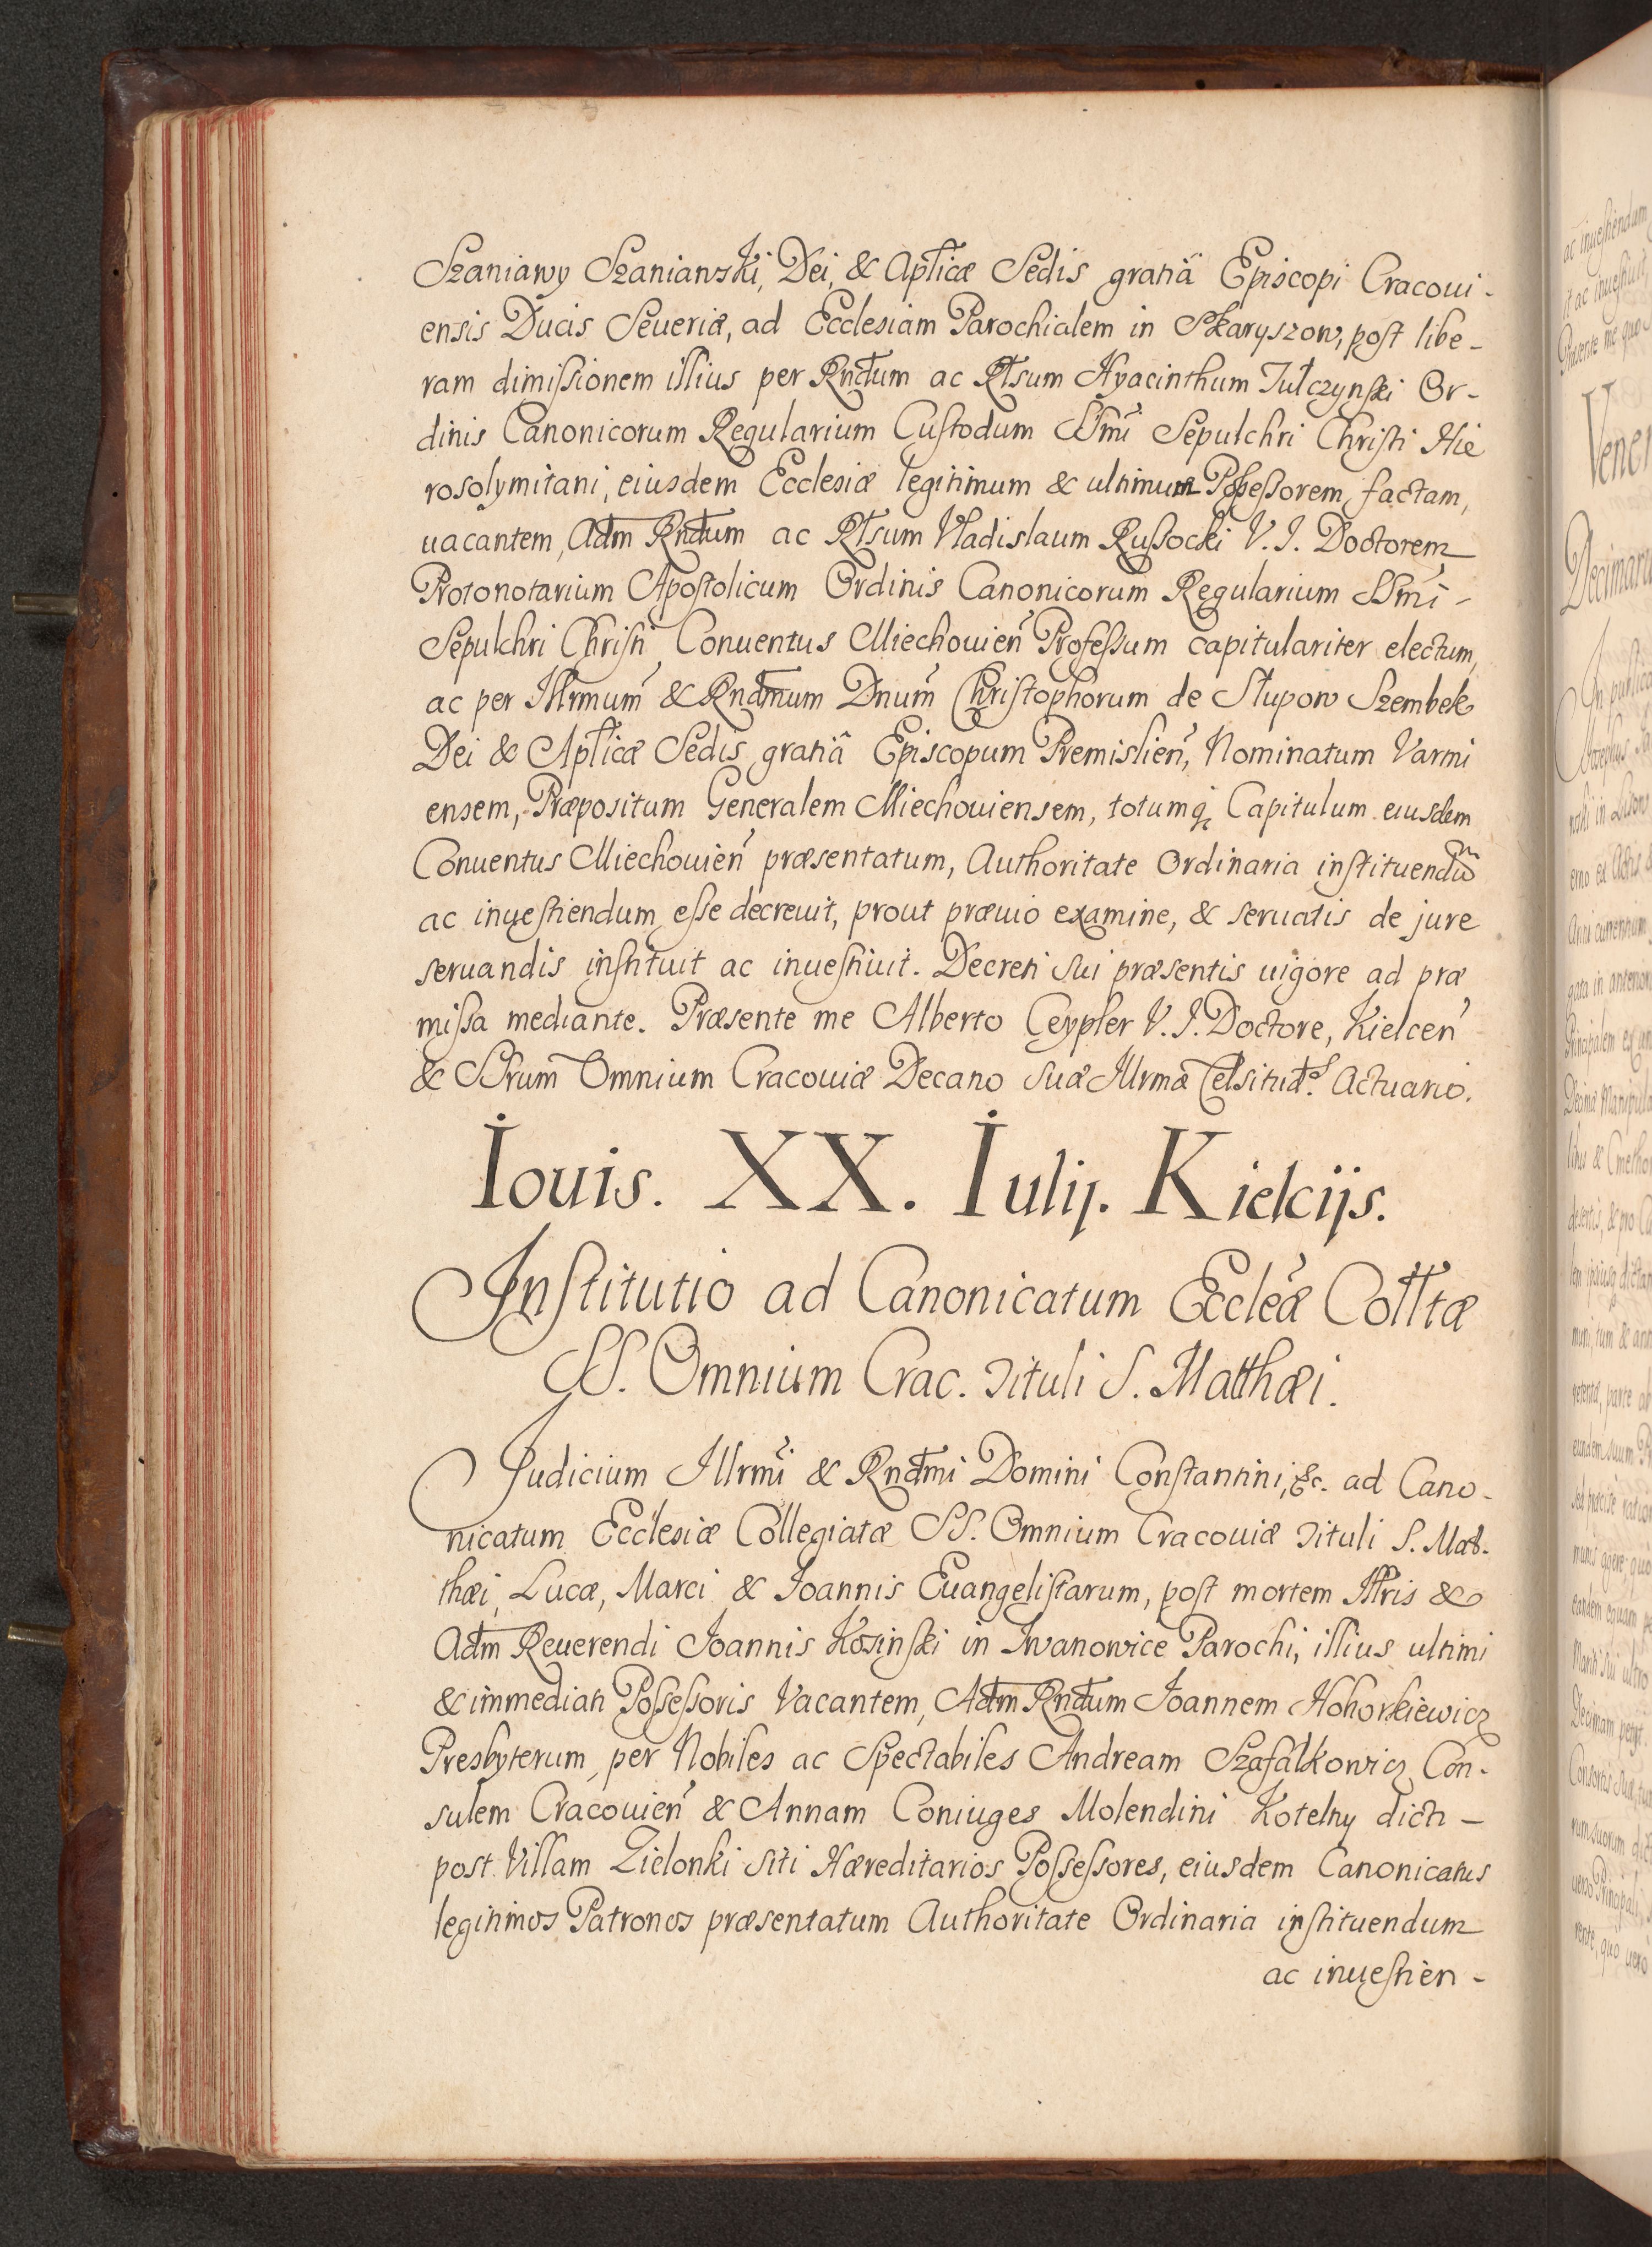 Szaniawy Szaniawski, Dei, & Aplicæ Sedis gratiâ Episcopi Cracoui-
ensis Ducis Seueriæ, ad Ecclesiam Parochialem in Skaryszow, post libe-
ram dimissionem illius per Rndum ac Rlsum Hyacinthum Tulczynski Or-
dinis Canonicorum Regularium Custodum SSmi Sepulchri Christi Hie
rosolymitani, eiusdem Ecclesiæ legitimum & ultimum Possessorem factam,
uacantem, Adm Rndum ac Rlsum Vladislaum Russocki V. I. Doctorem
Protonotarium Apostolicum Ordinis Canonicorum Regularium SSmi-
Sepulchri Christi Conuentus Miechouien Professum capitulariter electum,
ac per Illrmum & Rndmum Dnum Christophorum de Słupow Szembek
Dei & Aplicæ Sedis gratiâ Episcopum Premislien, Nominatum Varmi
ensem, Præpositum Generalem Miechouiensem, totumq Capitulum eiusdem
Conuentus Miechouien præsentatum, Authoritate Ordinaria instituendum
ac inuestiendum esse decreuit, prout præuio examine, & seruatis de jure
seruandis instituit ac inuestiuit. Decreti sui præsentis uigore ad præ
missa mediante. Præsente me Alberto Ceypler V. I. Doctore, Kielcen
& SSrum Omnium Cracouiæ Decano suæ Illrmæ Celsitud.s Actuario.
Iouis. XX. Iulij. Kielcijs.
Institutio ad Canonicatum Eccleæ Colltæ
SS. Omnium Crac. Tituli S. Matthæi.
Judicium Illrmi & Rndmi Domini Constantini, &c. ad Cano-
nicatum Ecclesiæ Collegiatæ SS. Omnium Cracouiæ Tituli S. Mat-
thæi, Lucæ, Marci & Joannis Euangelistarum, post mortem Illris &
Adm Reuerendi Joannis Kosinski in Iwanowice Parochi, illius ultimi
& immediati Possessoris Vacantem, Adm Rndum Joannem Hohorkiewicz
Presbyterum, per Nobiles ac Spectabiles Andream Szafalkowicz Con-
sulem Cracouien & Annam Coniuges Molendini Kotelny dicti -
post Villam Zielonki siti Hæreditarios Possessores, eiusdem Canonicatus
legitimos Patronos præsentatum Authoritate Ordinaria instituendum
ac inuestien-